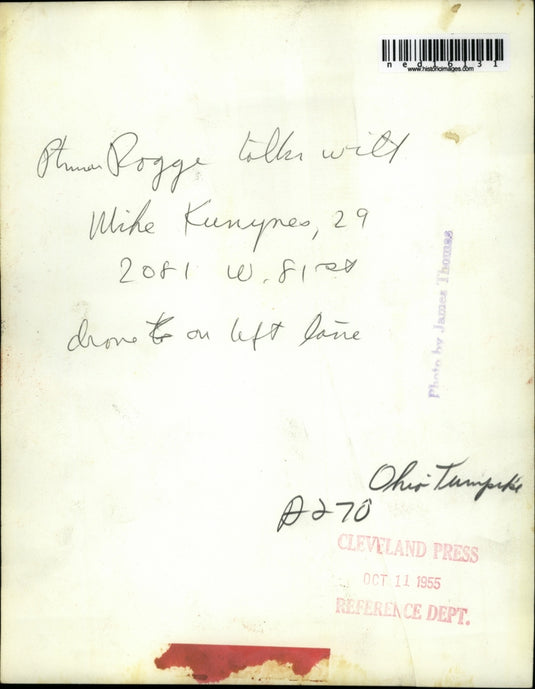 ned16131
www.historicimages.com
Ptman Rogge talks with
Mike Kunynes, 29
2081 W. 81st
drove on left lane
Photo by James Thomas
Ohio Turnpike
A270
CLEVELAND PRESS
OCT 11 1955
REFERENCE DEPT.